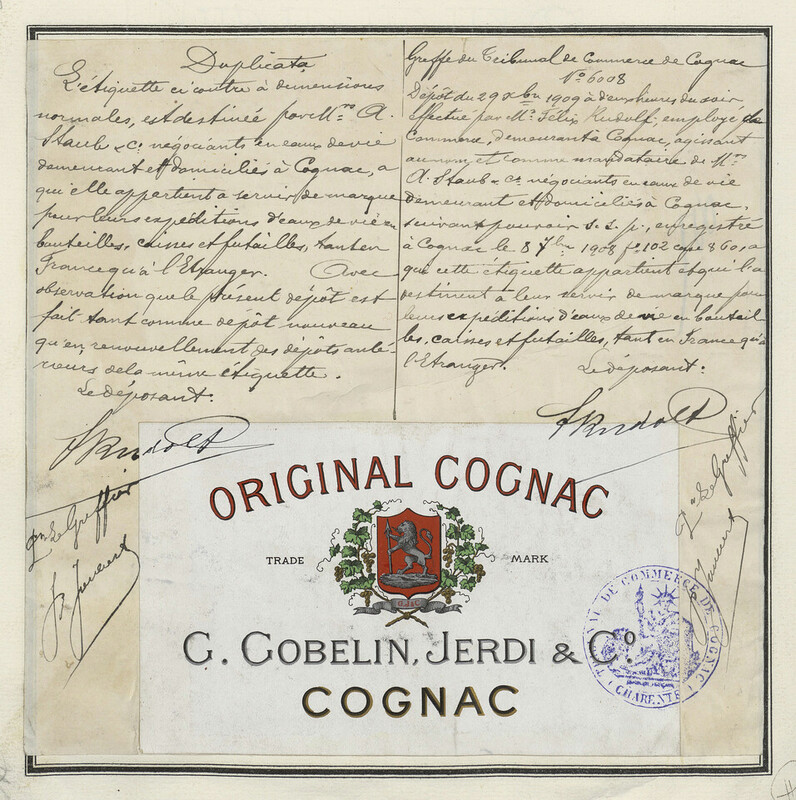 Duplicata
L'étiquette ci contre à dimensions
normales, est destinée par M.rs A.
Staub & Cie négociants en eaux de vie
demeurant et domiciliés à Cognac, a
qui elle appartient a servir de marque
pour leurs expéditions d'eaux de vie en
bouteilles, caisses et futailles, tant en
France qu'à l'Etranger. Avec
observation que le présent dépôt est
fait tant comme dépôt nouveau
qu'en renouvellement des dépôts anté-
rieurs de la même étiquette.
Le déposant.
Greffe du Tribunal de Commerce de Cognac
No 6008
Dépôt du 29 Xbre 1909 à deux heures du soir
effectué par Mr Félix Rudolf, employé de
Commerce, demeurant à Cognac, agissant
au nom et comme mandataire de M.rs
A. Staub & Cie négociants en eaux de vie
demeurant et domiciliés à Cognac,
suivant pouvoir s.s.p., enregistré
à Cognac le 8 7bre 1908 fo 102 case 860, a
qui cette étiquette appartient et qui la
destinent à leur servir de marque pour
leurs expéditions d'eaux de vie en bouteil
les, caisses et futailles, tant en France qu'à
l'Etranger. Le déposant.
F Rudolf
F Rudolf
Le Greffier
Le Greffier
ORIGINAL COGNAC
TRADE MARK
G. J & C
G. GOBELIN, JERDI & Co
COGNAC
TRIBUNAL DE COMMERCE DE COGNAC
(CHARENTE)